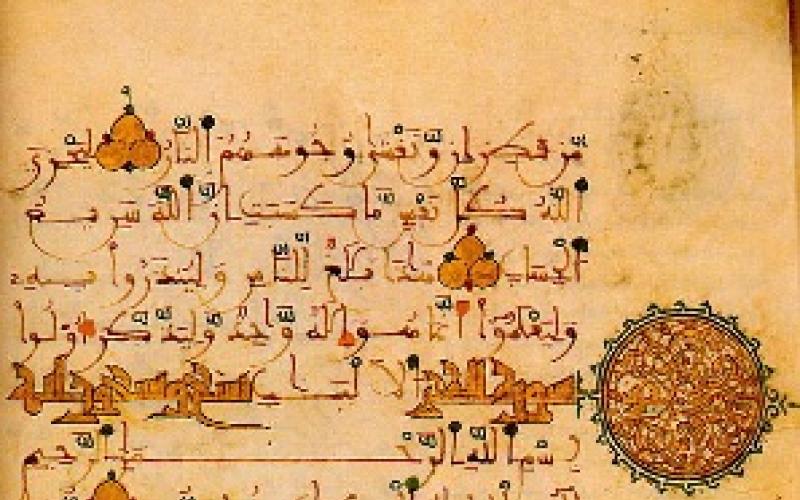 مِّن قَطِرَانٍ وَتَغْشَىٰ وُجُوهَهُمُ النَّارُ لِيَجْزِيَ
اللَّهُ كُلَّ نَفْسٍ مَّا كَسَبَتْ إِنَّ اللَّهَ سَرِيعُ
الْحِسَابِ هَٰذَا بَلَٰغٌ لِّلنَّاسِ وَلِيُنذَرُوا بِهِ
وَلِيَعْلَمُوا أَنَّمَا هُوَ إِلَٰهٌ وَاحِدٌ وَلِيَذَّكَّرَ أُولُوا
سورة الحجر الْأَلْبَابِ
بِسْمِ اللَّهِ الرَّحْمَٰنِ الرَّحِيمِ